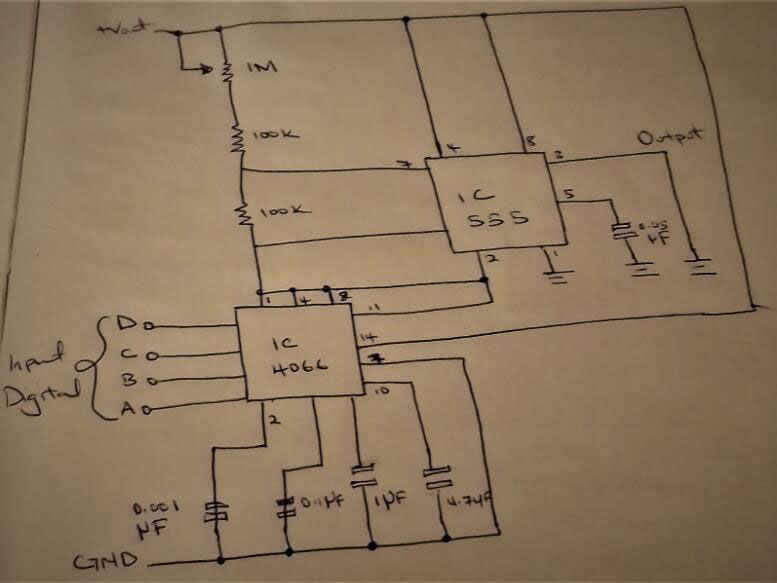 +Vout
1M
100K
100K
7
4
8
3
Output
IC
555
5
0.05
µF
2
1
1
4
8
11
14
7
10
IC
4066
Input
Digital
D
C
B
A
2
0.001
µF
0.1µF
1µF
4.7µF
GND